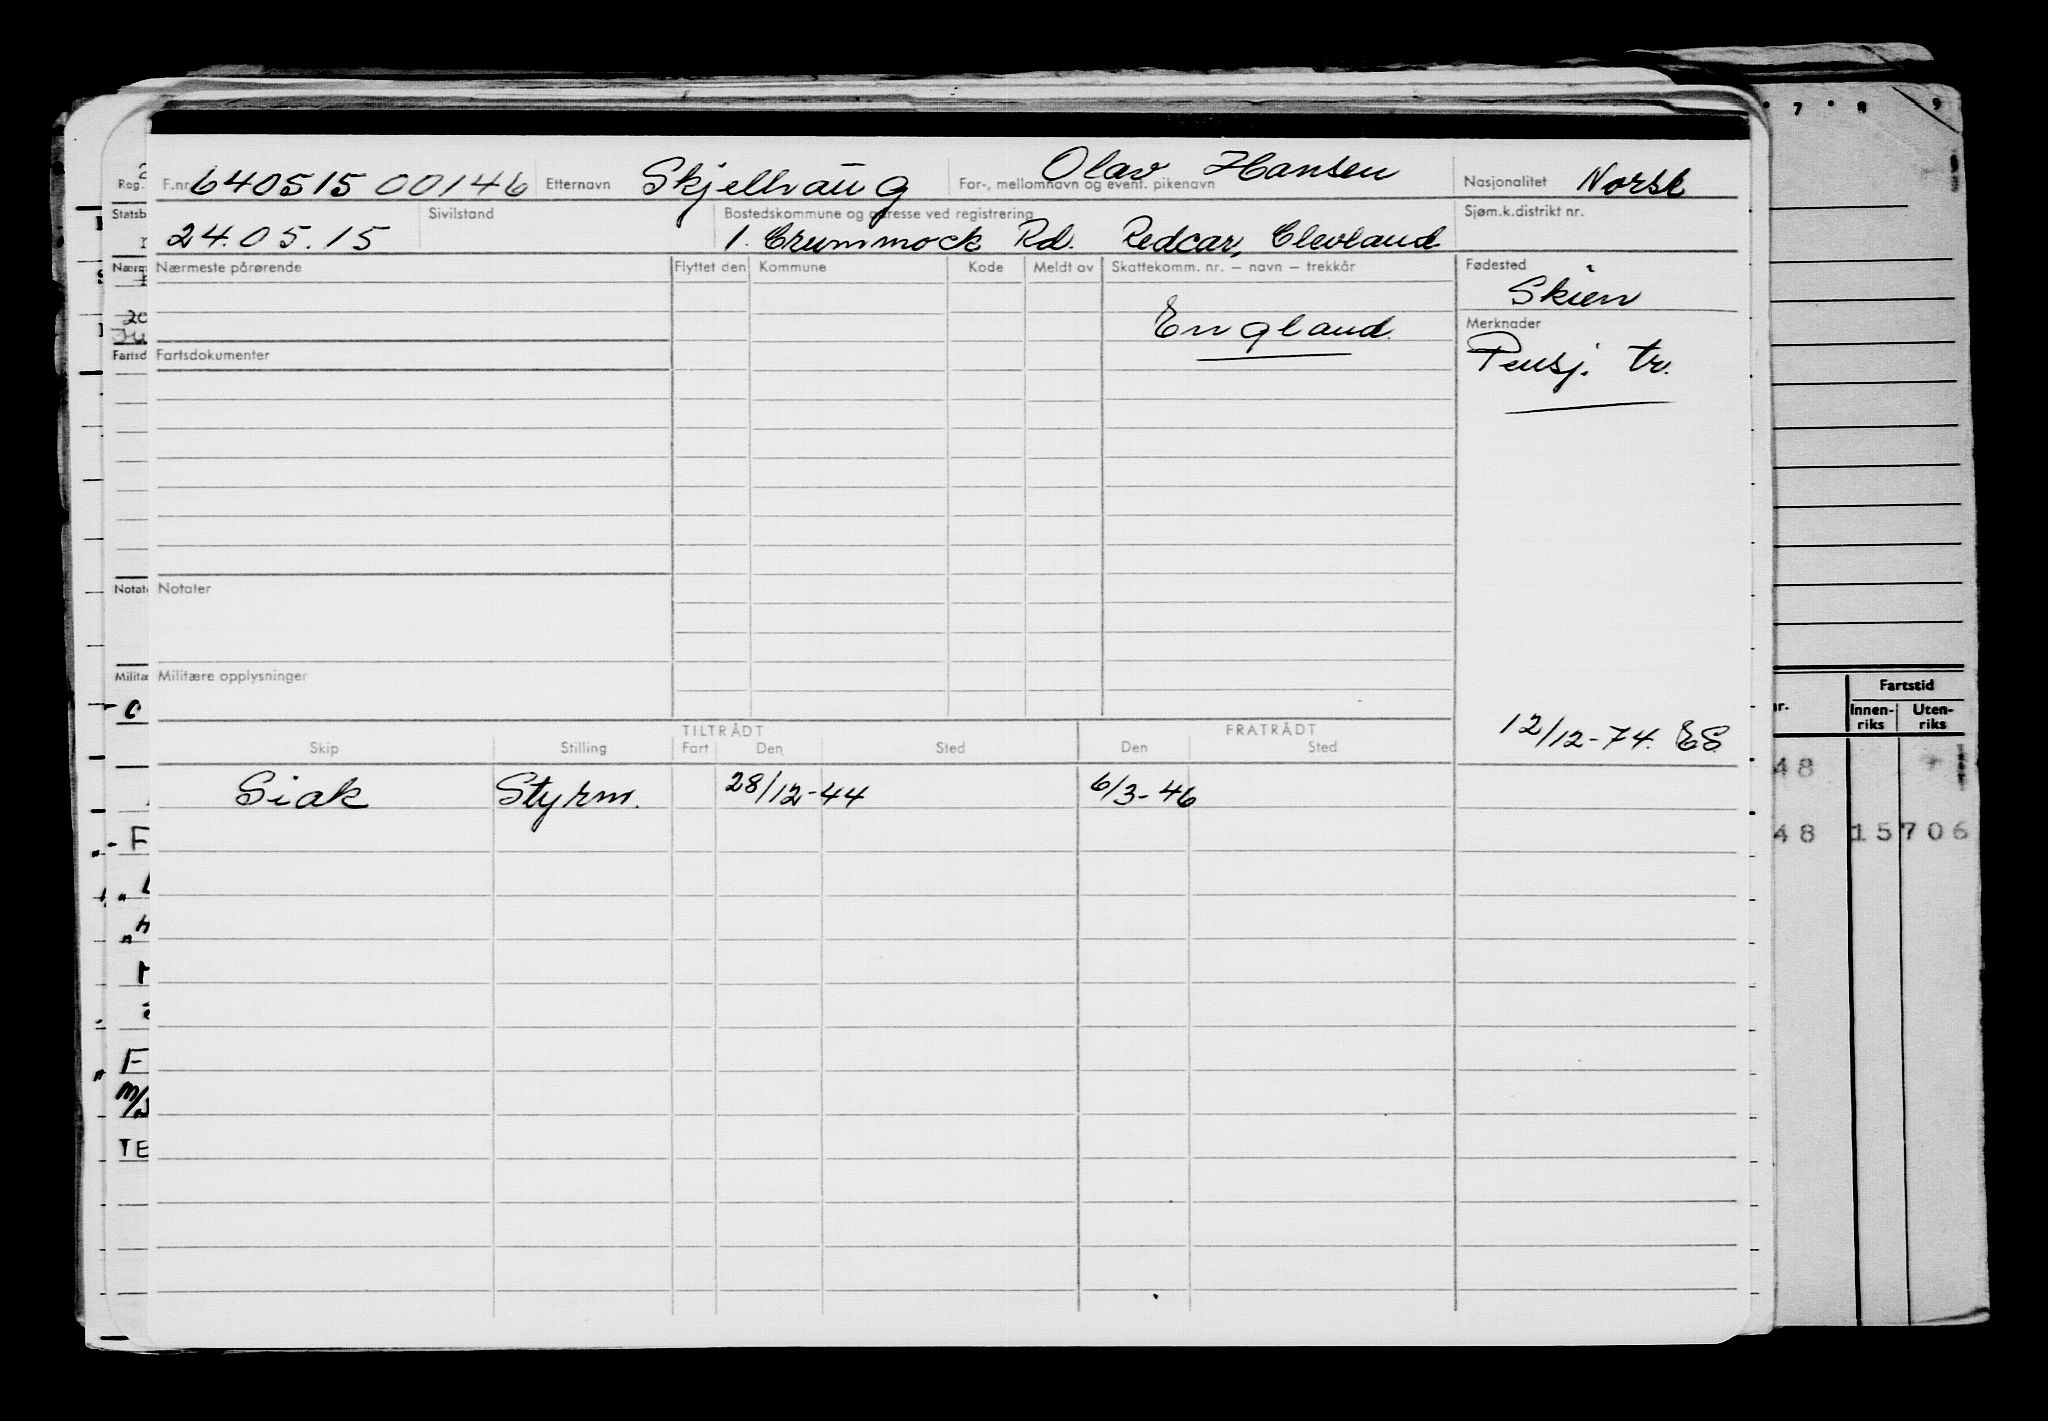 F.nr. 640515 00146 Etternavn Skjelhaug For-, mellomnavn og event. pikenavn Olav Hansen Nasjonalitet Norsk
Sivilstand Bostedskommune og adresse ved registrering Sjøm.k.distrikt nr.
24.05.15 1. Crummock Rd. Redcar, Clevland
Nærmeste pårørende Flyttet den Kommune Kode Meldt av Skattekomm. nr. – navn – trekkår Fødested
Skien
England. Merknader
Fartsdokumenter Pensj. tr.
Notater
Militære opplysninger
12/12-74. ES
TILTRÅDT FRATRÅDT
Skip Stilling Fart Den Sted Den Sted
Siak Styrm. 28/12-44 6/3-46
7 8 9
Fartstid
Innen-riks Uten-riks
48
48 15706